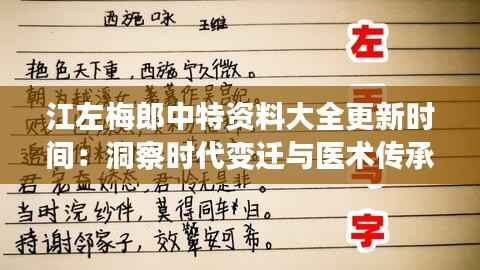 西施咏 王维
左
艳色天下重，西施宁久微。
江左梅郎中特资料大全更新时
间：洞察时代变迁与医术传承
君宠益娇态，君怜无是非。
当时浣纱伴，莫得同车归。
持谢邻家子，效颦安可希。
字